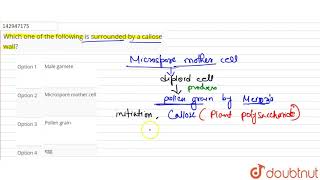 142947175
Which one of the following is surrounded by a callose
wall?
Option 1 Male gamete
Option 2 Microspore mother cell
Option 3 Pollen grain
Option 4
Microspore mother cell
diploid cell
produces
pollen grain by Meiosis
initiation, Callose (Plant polysaccharide)
doubtnut